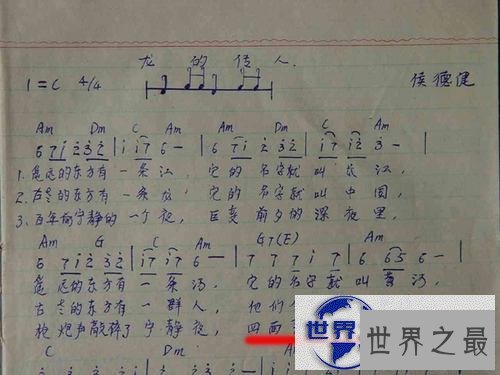 龙 的 传 人.
1=C 4/4 侯德健
Am Dm C Am Am Dm C Am
6 7i 2 32 | i i7 6 — | 6 7i 2 32 | i7 i2 3 — |
1.遥远的东方有一条江, 它的名字就叫长江,
2.古老的东方有一条龙, 它的名字就叫中国,
3.百年前宁静的一个夜, 巨变前夕的深夜里,
Am G C Am G7(E) Am
6 7i2 32 | i7 i7 6 — | 7 7 7 i 7 | 6 65 6 — |
遥远的东方有一条河, 它的名字就叫黄河,
古老的东方有一群人, 他们
枪炮声敲碎了宁静夜, 四面
C Dm
世界
世界之最